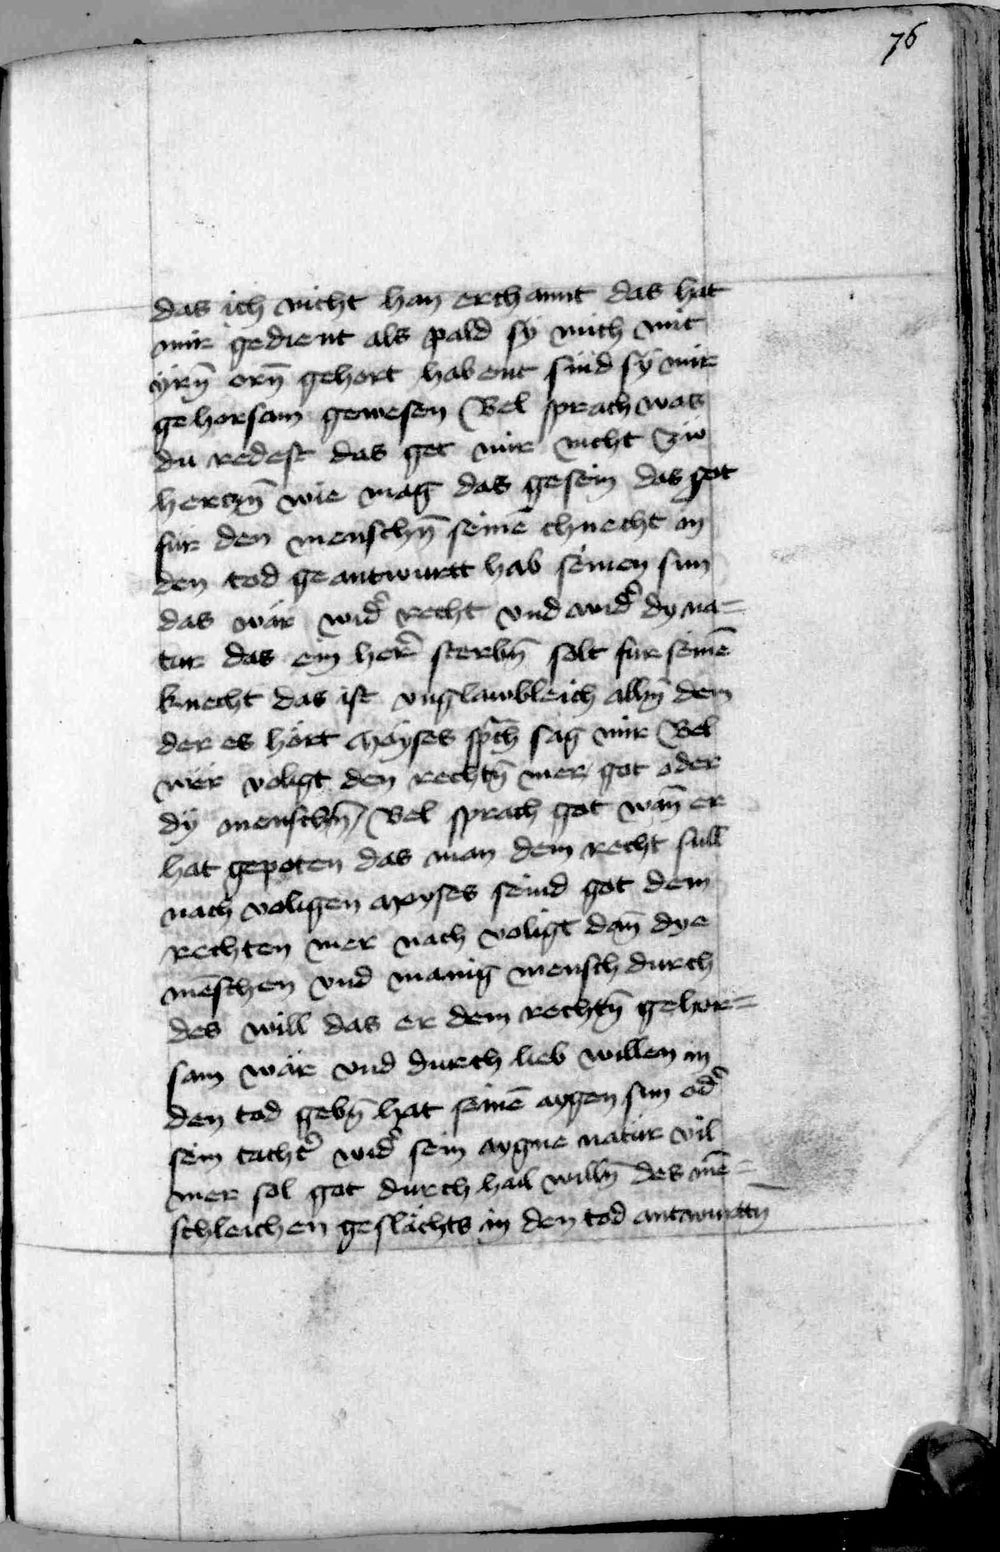 76
das ich nicht han erchannt das hat
mir gedient als pald sÿ mich mit
ÿrn̄ orn̄ gehort habent sind sÿ mir
gehorsam gewesen Bel sprach was
du redest das get mir nicht zw
herczn̄ wie mag das gesein das got
für den menschn̄ seinē chnecht in
den tod geantwurtt hab seinen sun
das wär wid̾ recht vnd wid̾ dy na=
tur das ein her̾ sterbn̄ solt fur seinē
knecht das ist vnglawbleich alln̄ den
der es hört Moÿses sp̾ch sag mir Bel
wer voligt den rechtn̄ mer got oder
dÿ menschn̄ / Bel sprach got wan̄ er
hat gepoten das man dem recht süll
nach voligen Moyses seind got dem
rechten mer nach voligt dan̄ dye
mēschen vnd manig mensch durch
des will das er dem rechtn̄ gehor=
sam wär vnd durch lieb willen in
den tod gebn̄ hat seinē aygen sun od̾
sein tacht̾ wid̾ sein aygne natur vil
mer sol got durch hail willn̄ des mē=
schleichen geslächts in den tod antwurttn̄